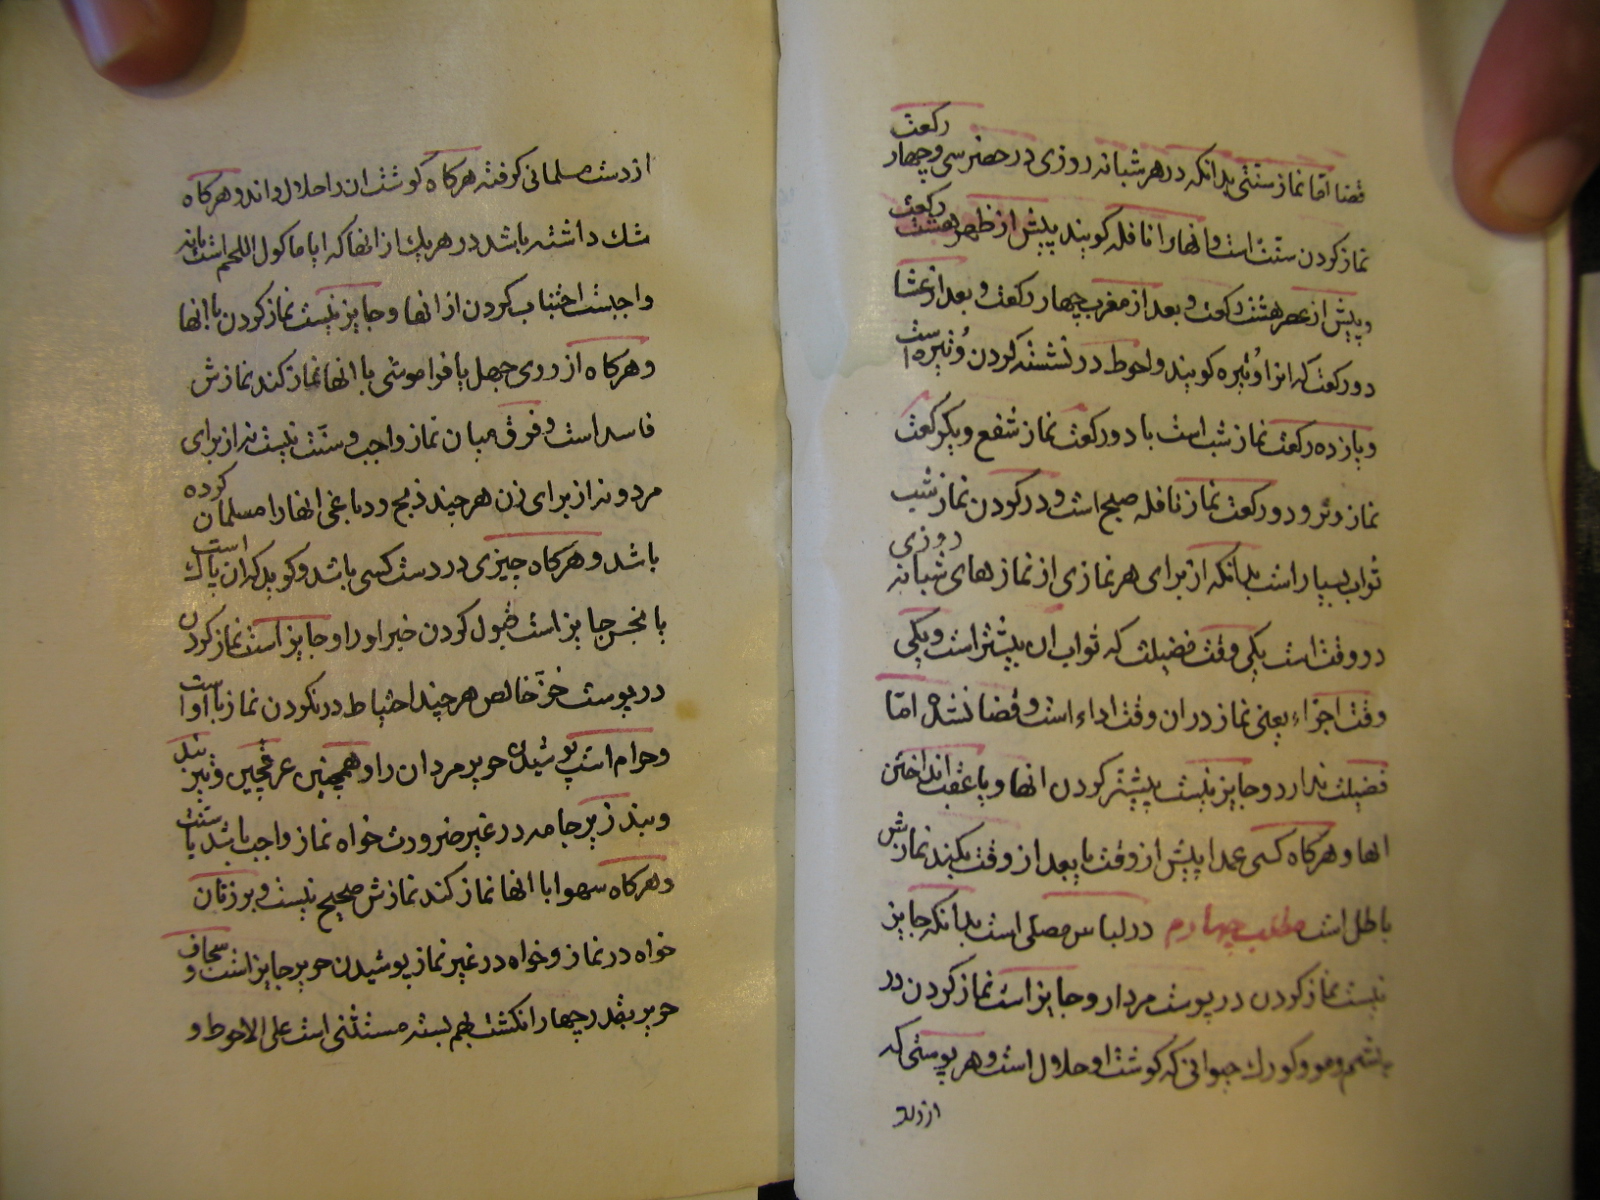 قضا امّا نماز سنتی بدانکه در هر شبانه روزی در حضر سی و چهار رکعت
نماز کردن سنّت است و انها را نافله کویند پیش از ظهر هشت رکعت
و پیش از عصر هشت رکعت و بعد از مغرب چهار رکعت و بعد از عشا
دو رکعت که انرا وُتیره کویند و احوط در نشسته کردن وُتیره است
و یازده رکعت نماز شب است با دو رکعت نماز شفع و یکرکعت
نماز وتر و دو رکعت نماز نافله صبح است و در کردن نماز شب
ثواب بسیار است بدانکه از برای هر نمازی از نماز های شبانه روزی
دو وقت است یکی وقت فضیلت که ثواب ان بیشتر است و یکی
وقت اجزاء یعنی نماز دران وقت اداء است و قضا نشده امّا
فضیلت ندارد و جایز نیست پیشتر کردن انها و یا عقب انداختن
انها و هرکاه کسی عمدا پیش از وقت یا بعد از وقت بکند نمازش
باطل است مطلب چهارم در لباس مصلی است بدانکه جایز
نیست نماز کردن در پوست مردار و جایز است نماز کردن در
پشم و مو و کورک حیوانی که کوشت او حلال است و هر پوستی که
از دست
از دست مسلمانی کرفته هرکاه کوشت ان را حلال داند و هرکاه
شك داشته باشد در هریك از انها که ایا ماکول اللحم است یا نه
واجبست اجتناب کردن از انها و جایز نیست نماز کردن با انها
و هرکاه از روی جهل یا فراموشی با انها نماز کند نمازش
فاسد است و فرق میان نماز واجب و سنّت نیست نه از برای
مرد و نه از برای زن هر چند ذبح و دباغی انها را مسلمان کرده
باشد و هرکاه چیزی در دست کسی باشد و کوید که ان پاك است
یا نجس جایز است قبول کردن خبر او را و جایز است نماز کردن
در پوست خزّ خالص هر چند احتیاط در نکردن نماز با او است
و حرام است پوشیدن حریر مردان را و همچنین عرقچین و نیز بند
و بند زیر جامه در غیر ضرورت خواه نماز واجب باشد یا سنّت
و هرکاه سهوا با انها نماز کند نمازش صحیح نیست و بر زنان
خواه در نماز و خواه در غیر نماز پوشیدن حریر جایز است و سجاف
حریر بقدر چهار انکشت بهم بسته مستثنی است علی الاحوط و